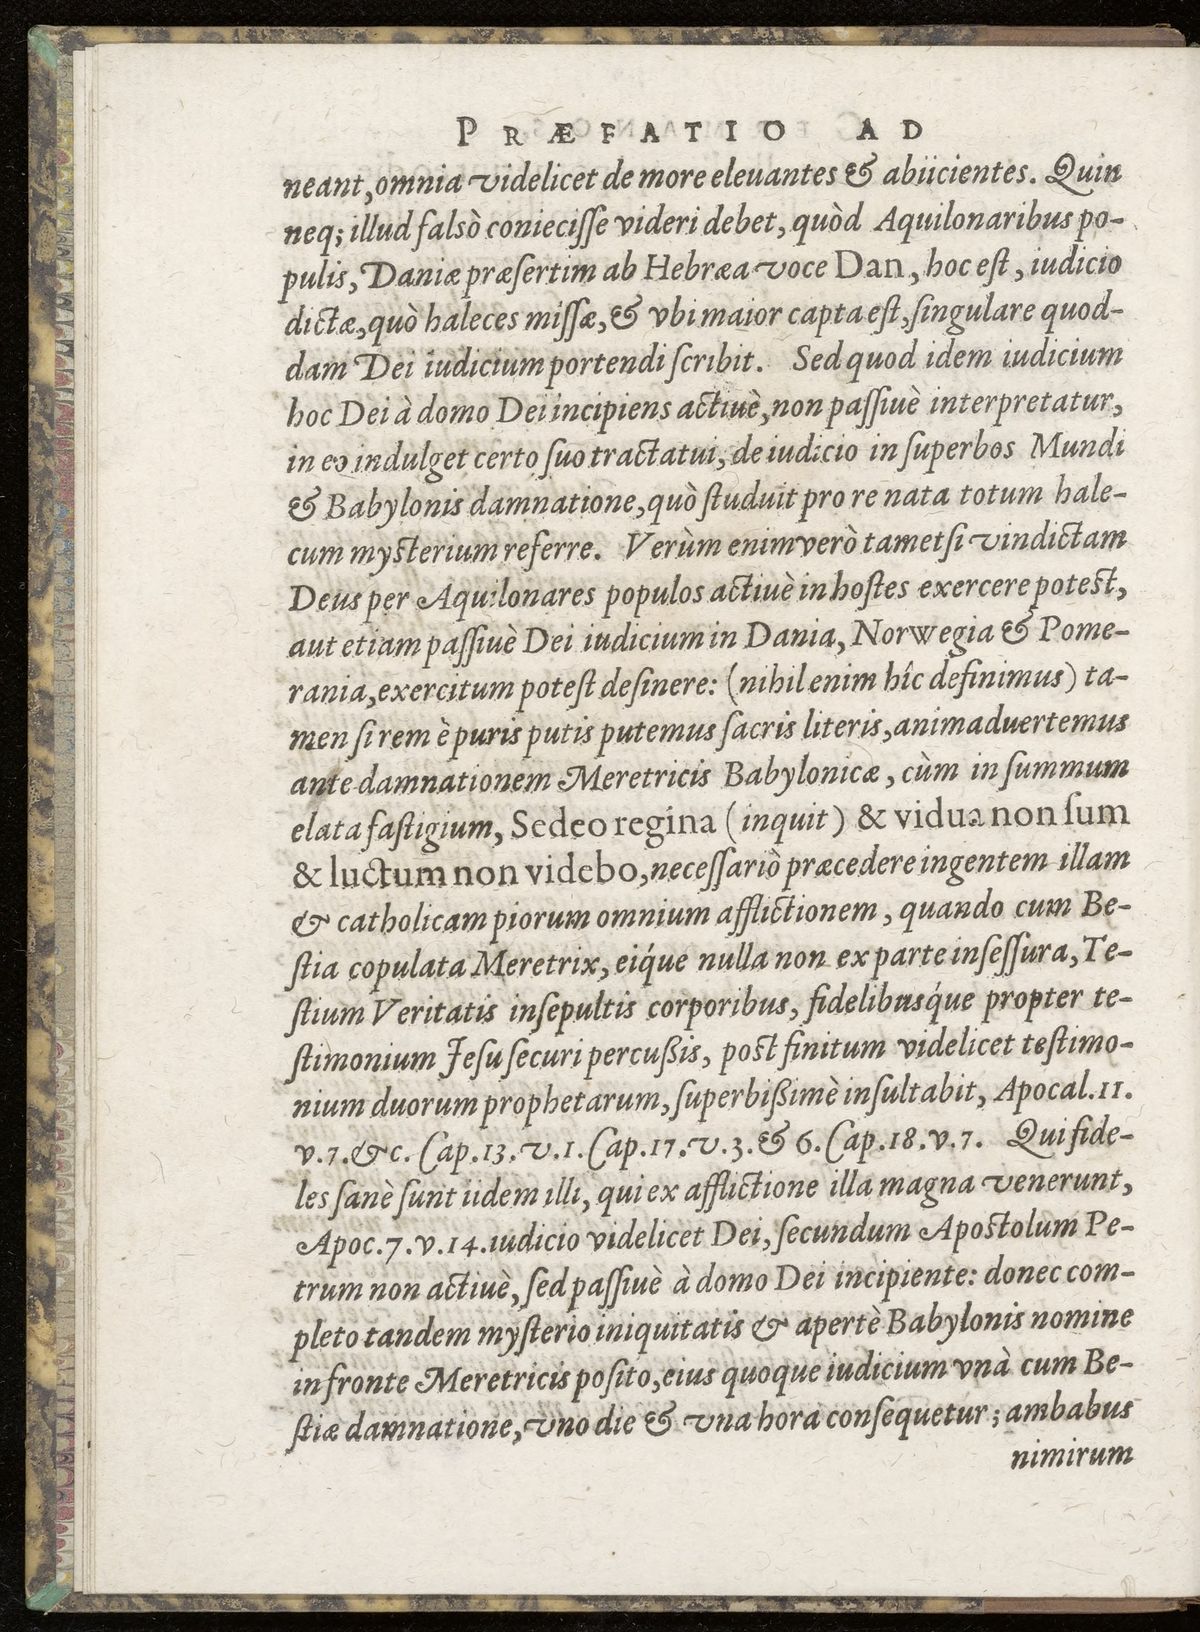 PRÆFATIO AD
neant, omnia videlicet de more eleuantes & abiicientes. Quin
neq; illud falsò coniecisse videri debet, quòd Aquilonaribus po-
pulis, Daniæ præsertim ab Hebræa voce Dan, hoc est, iudicio
dictæ, quò haleces missæ, & vbi maior capta est, singulare quod-
dam Dei iudicium portendi scribit. Sed quod idem iudicium
hoc Dei à domo Dei incipiens actiuè, non passiuè interpretatur,
in eo indulget certo suo tractatui, de iudicio in superbos Mundi
& Babylonis damnatione, quò studuit pro re nata totum hale-
cum mysterium referre. Verùm enimverò tametsi vindictam
Deus per Aquilonares populos actiuè in hostes exercere potest,
aut etiam passiuè Dei iudicium in Dania, Norwegia & Pome-
rania, exercitum potest desinere: (nihil enim hîc definimus) ta-
men si rem è puris putis putemus sacris literis, animaduertemus
ante damnationem Meretricis Babylonicæ, cùm in summum
elata fastigium, Sedeo regina (inquit) & vidua non sum
& luctum non videbo, necessariò præcedere ingentem illam
& catholicam piorum omnium afflictionem, quando cum Be-
stia copulata Meretrix, eíque nulla non ex parte insessura, Te-
stium Veritatis insepultis corporibus, fidelibusq́ue propter te-
stimonium Jesu securi percußis, post finitum videlicet testimo-
nium duorum prophetarum, superbißimè insultabit, Apocal. 11.
v. 7. &c. Cap. 13. v. 1. Cap. 17. v. 3. & 6. Cap. 18. v. 7. Qui fide-
les sanè sunt iidem illi, qui ex afflictione illa magna venerunt,
Apoc. 7. v. 14. iudicio videlicet Dei, secundum Apostolum Pe-
trum non actiuè, sed passiuè à domo Dei incipiente: donec com-
pleto tandem mysterio iniquitatis & apertè Babylonis nomine
in fronte Meretricis posito, eius quoque iudicium vnà cum Be-
stiæ damnatione, vno die & vna hora consequetur; ambabus
nimirum